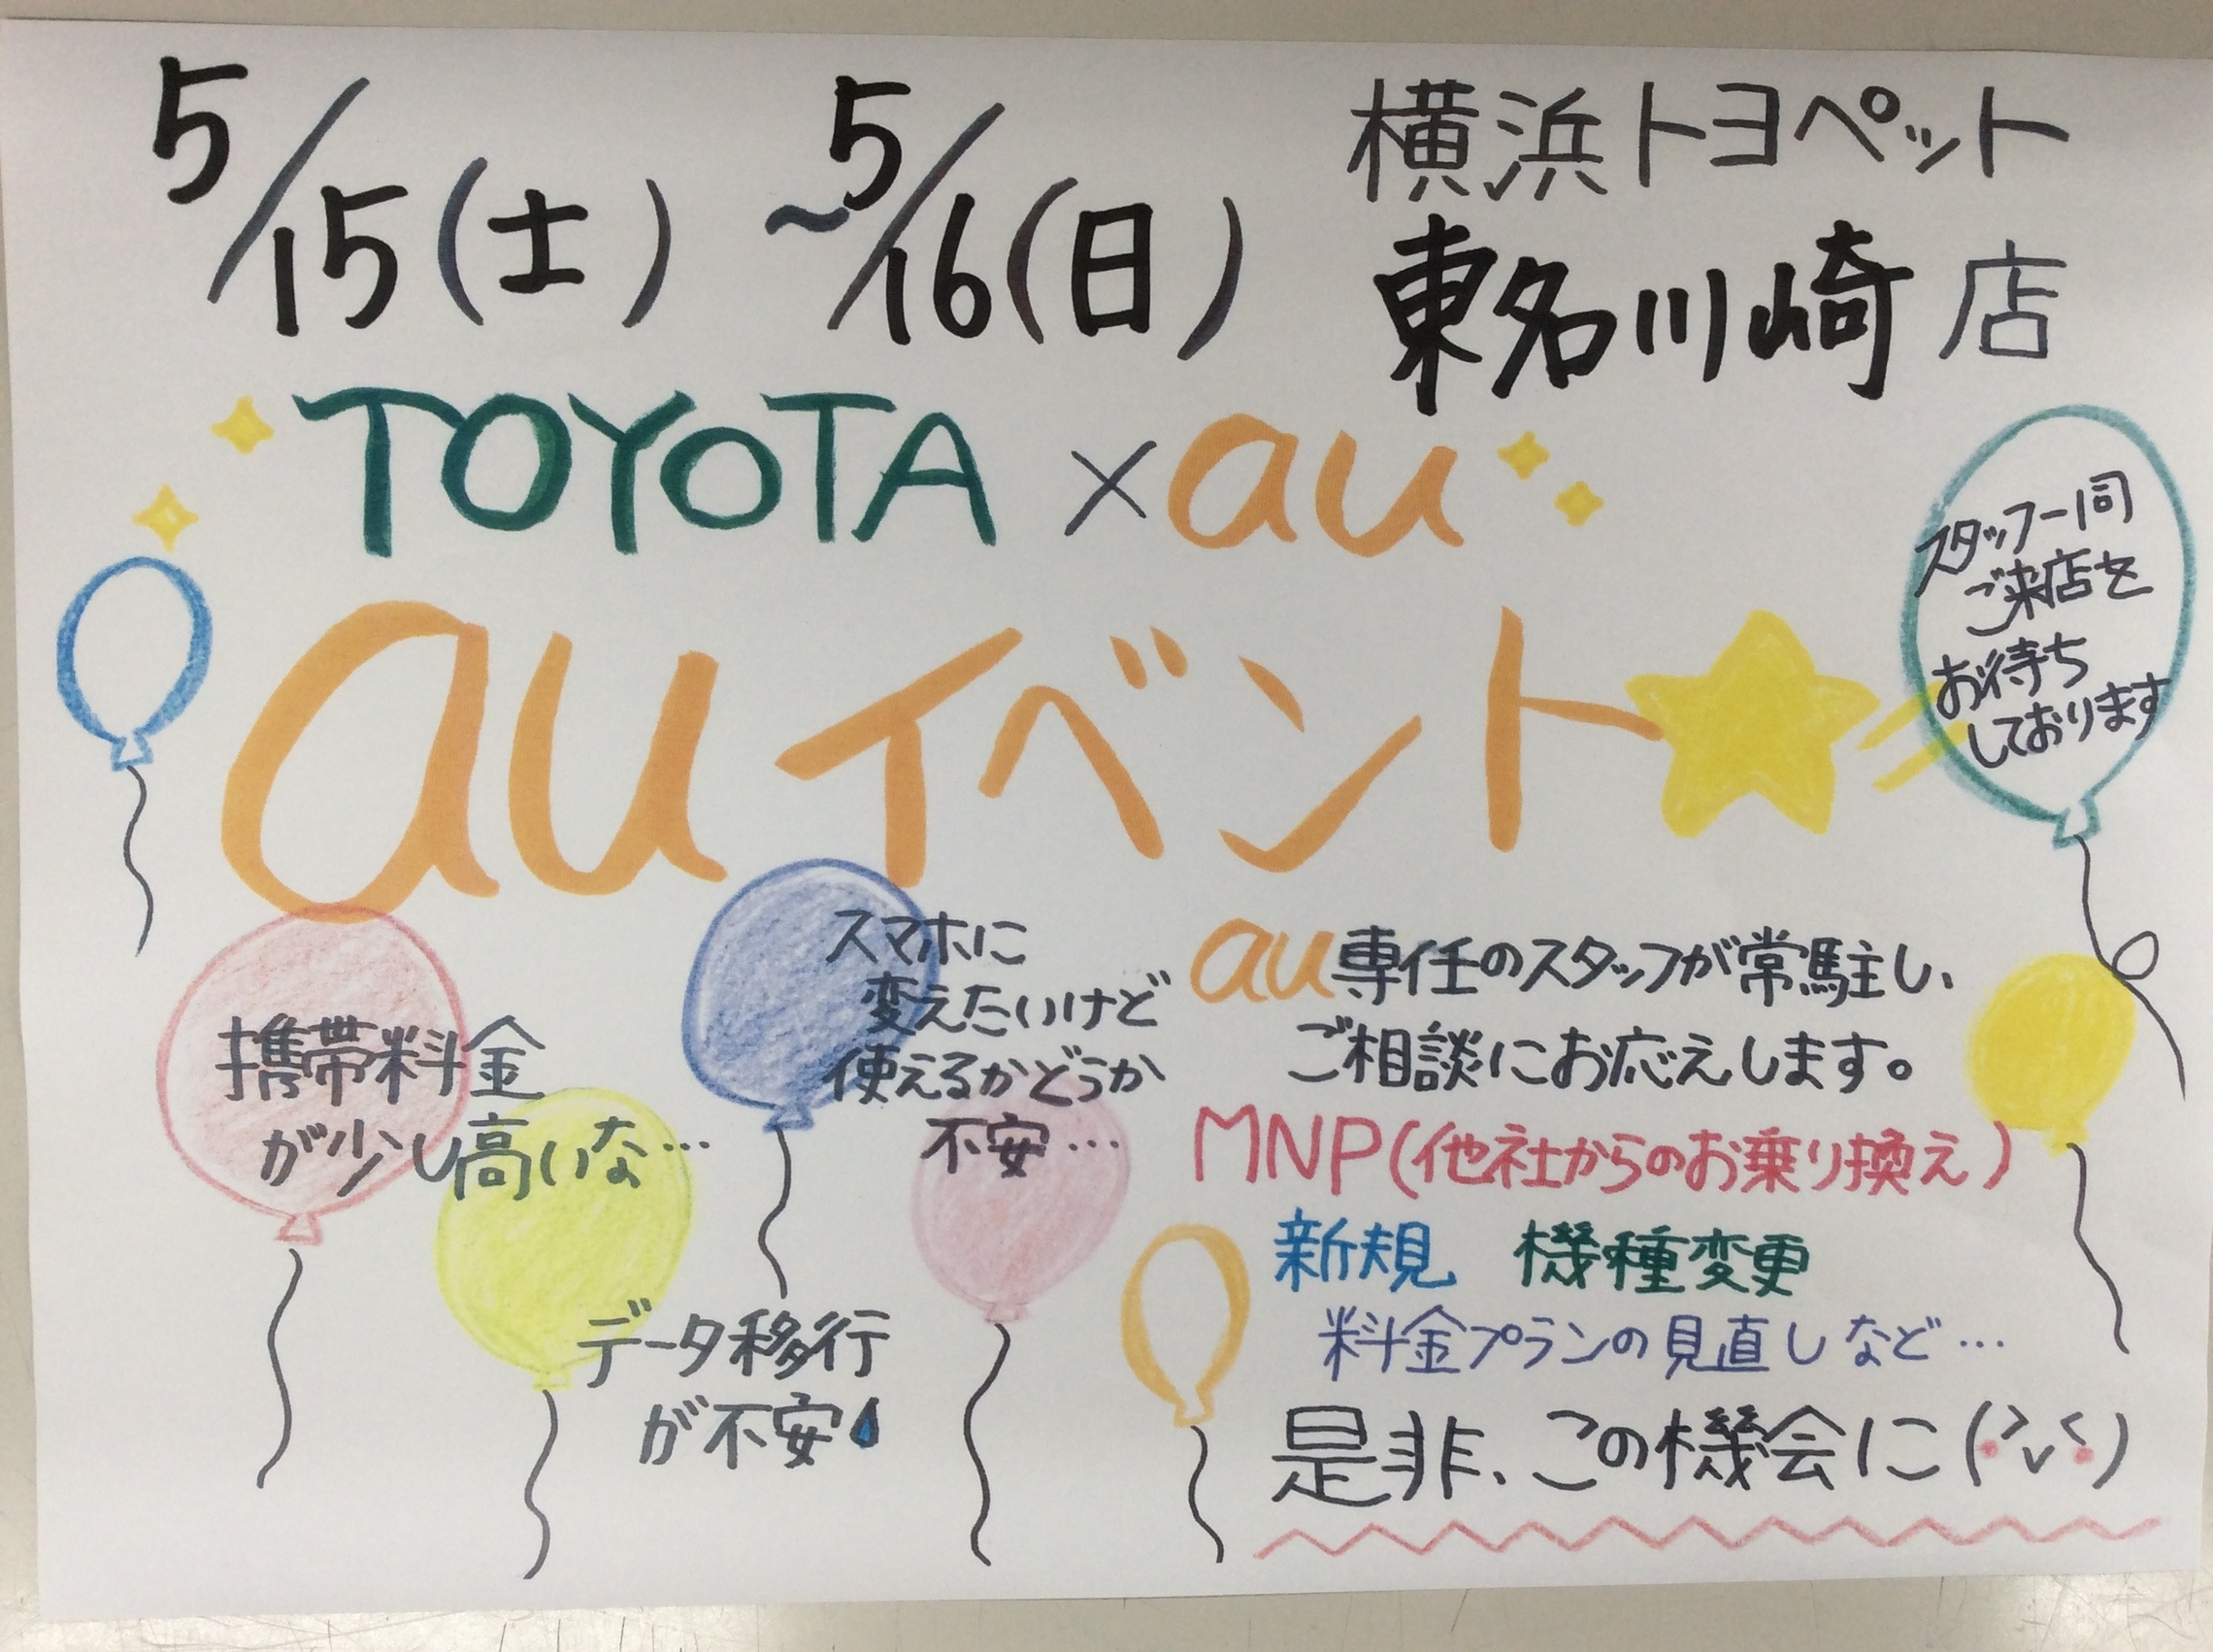 5/15(土)~5/16(日)
横浜トヨペット
東名川崎店
TOYOTA×au
auイベント
スタッフ一同
ご来店を
お待ち
しております
携帯料金
が少し高いな…
スマホに
変えたいけど
使えるかどうか
不安…
データ移行
が不安
au専任のスタッフが常駐し、
ご相談にお応えします。
MNP(他社からのお乗り換え)
新規 機種変更
料金プランの見直しなど…
是非、この機会に(>v<)